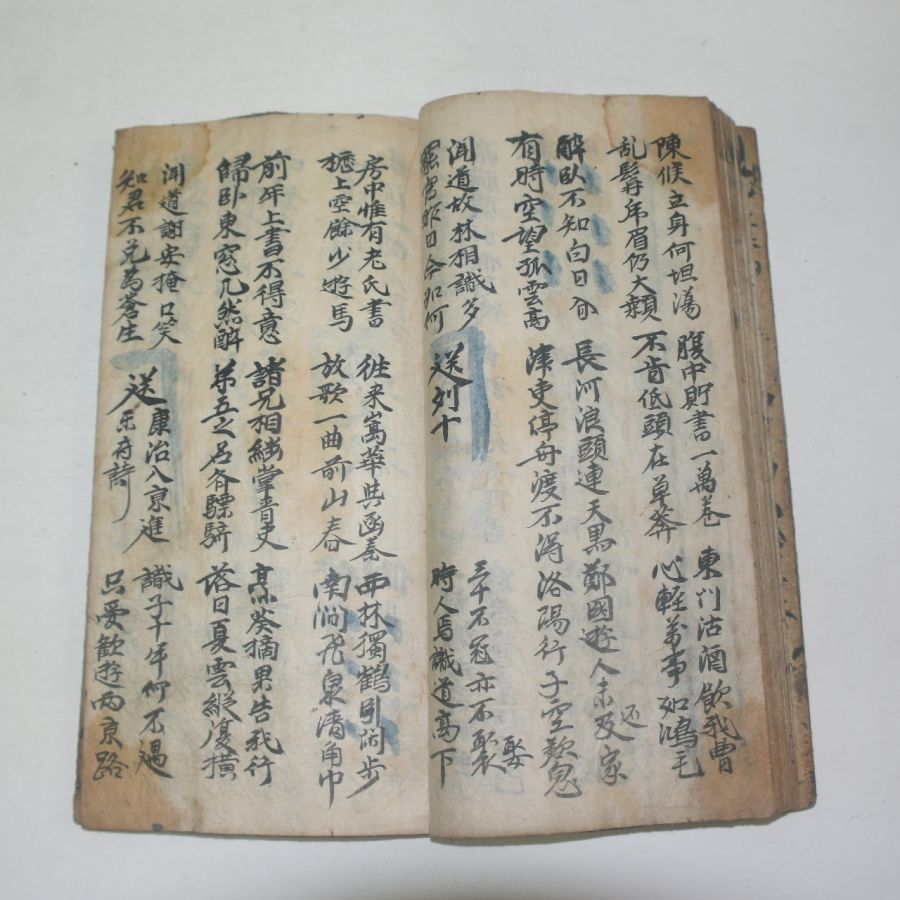 陳候立身何坦蕩
乱髯虎眉仍大顙
腹中貯書一萬卷
不肯低頭在草莽
東门沽酒飲我曹
心輕萬事如鴻毛
醉臥不知白日
有時空望孤雲高
長河浪頭連天黑
津吏停舟渡不得
鄭國遊人未及家
還
洛陽行子空歎息
聞道故林相識多
罷官昨日今如何
送刘十
三十不冠亦不
娶
時人焉識道高下
房中惟有老氏書
櫪上空餘少遊馬
往来嵩華共函秦
放歌一曲前山春
西林獨鶴引閑步
南澗飛泉清角巾
前年上書不得意
歸卧東窓兀然醉
諸兄相継掌青史
第五之名齐驃騎
烹葵摘果告我行
落日夏雲縱復橫
聞道謝安掩口笑
知君不免為蒼生
送康治入京進
乐府詩
識子十年何不遇
只愛歡遊兩京路